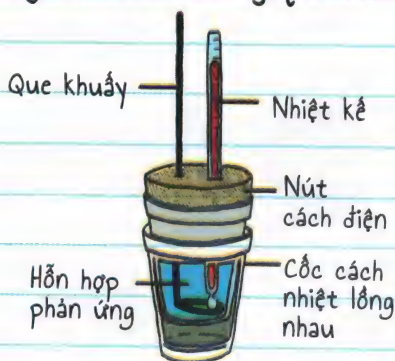 Que khuấy
Nhiệt kế
Nút
cách điện
Hỗn hợp
phản ứng
Cốc cách
nhiệt lồng
nhau